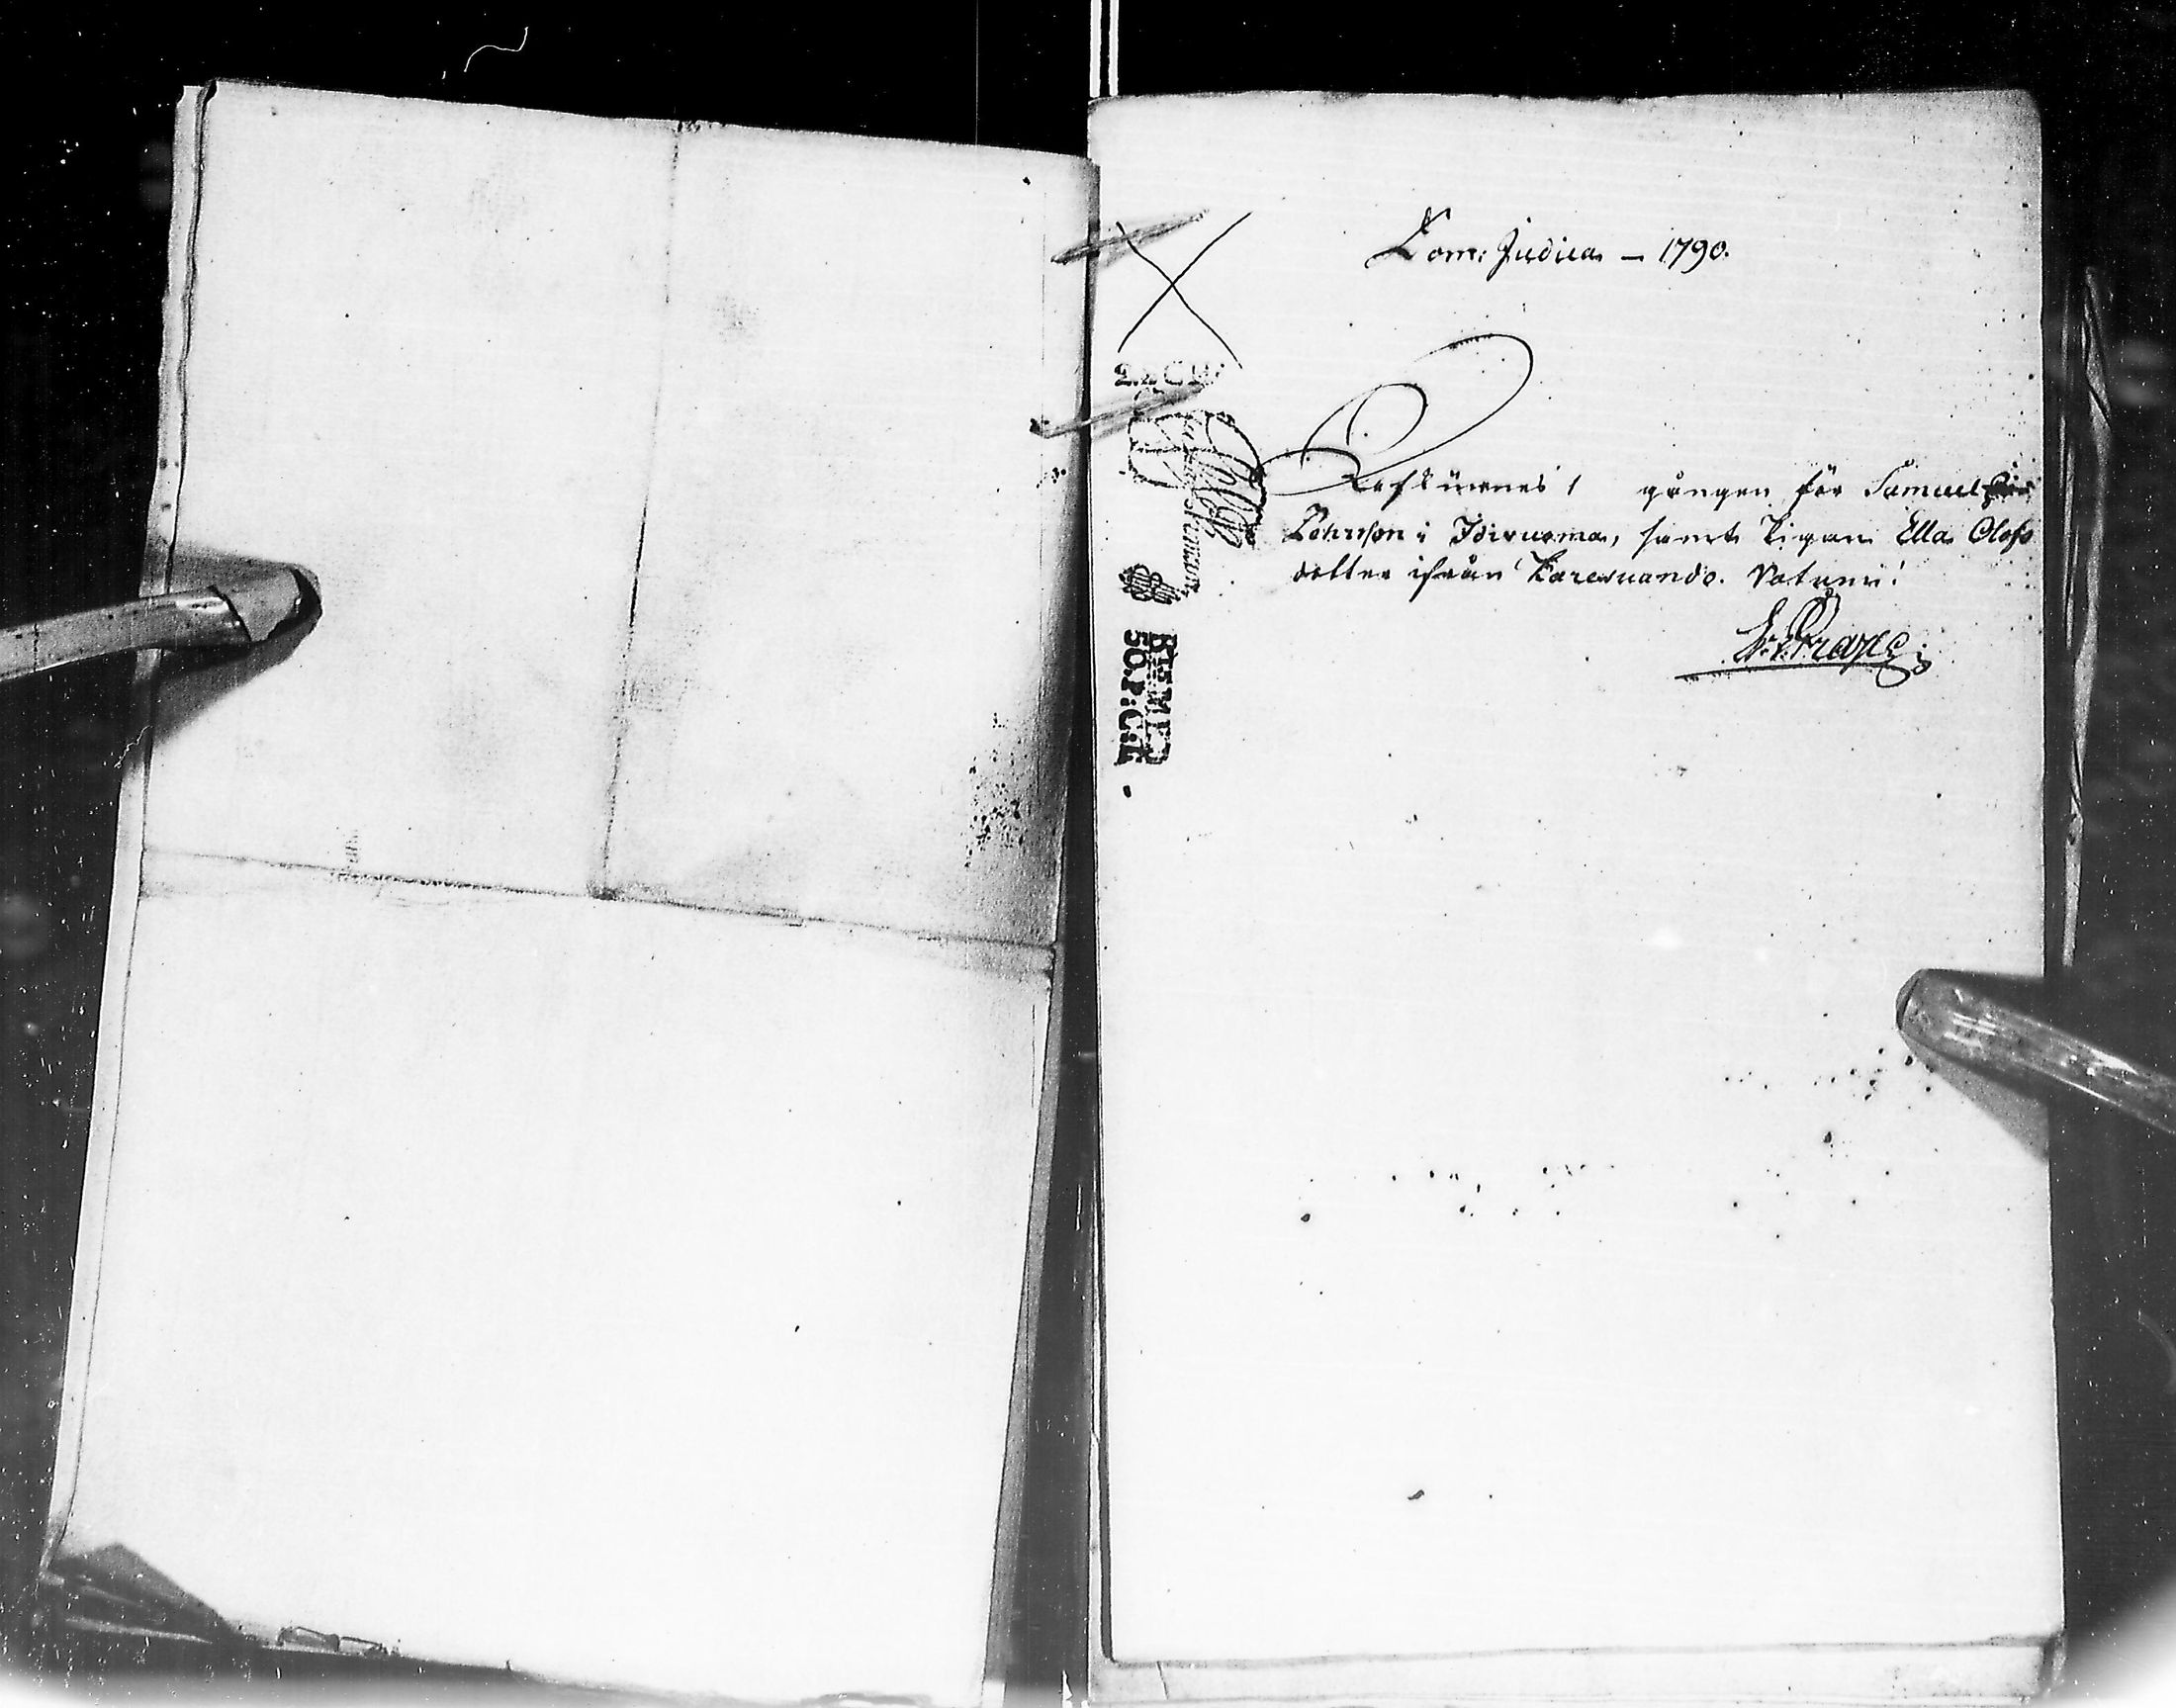 Dom: Judica – 1790.
Aflÿsnes 1 gången för Samuel
Johnsson i Idivuoma, samt Pigan Ella Olofs
dotter ifrån Karesuando. Datum!
E: Grape
BTEMP
50.P:C:L